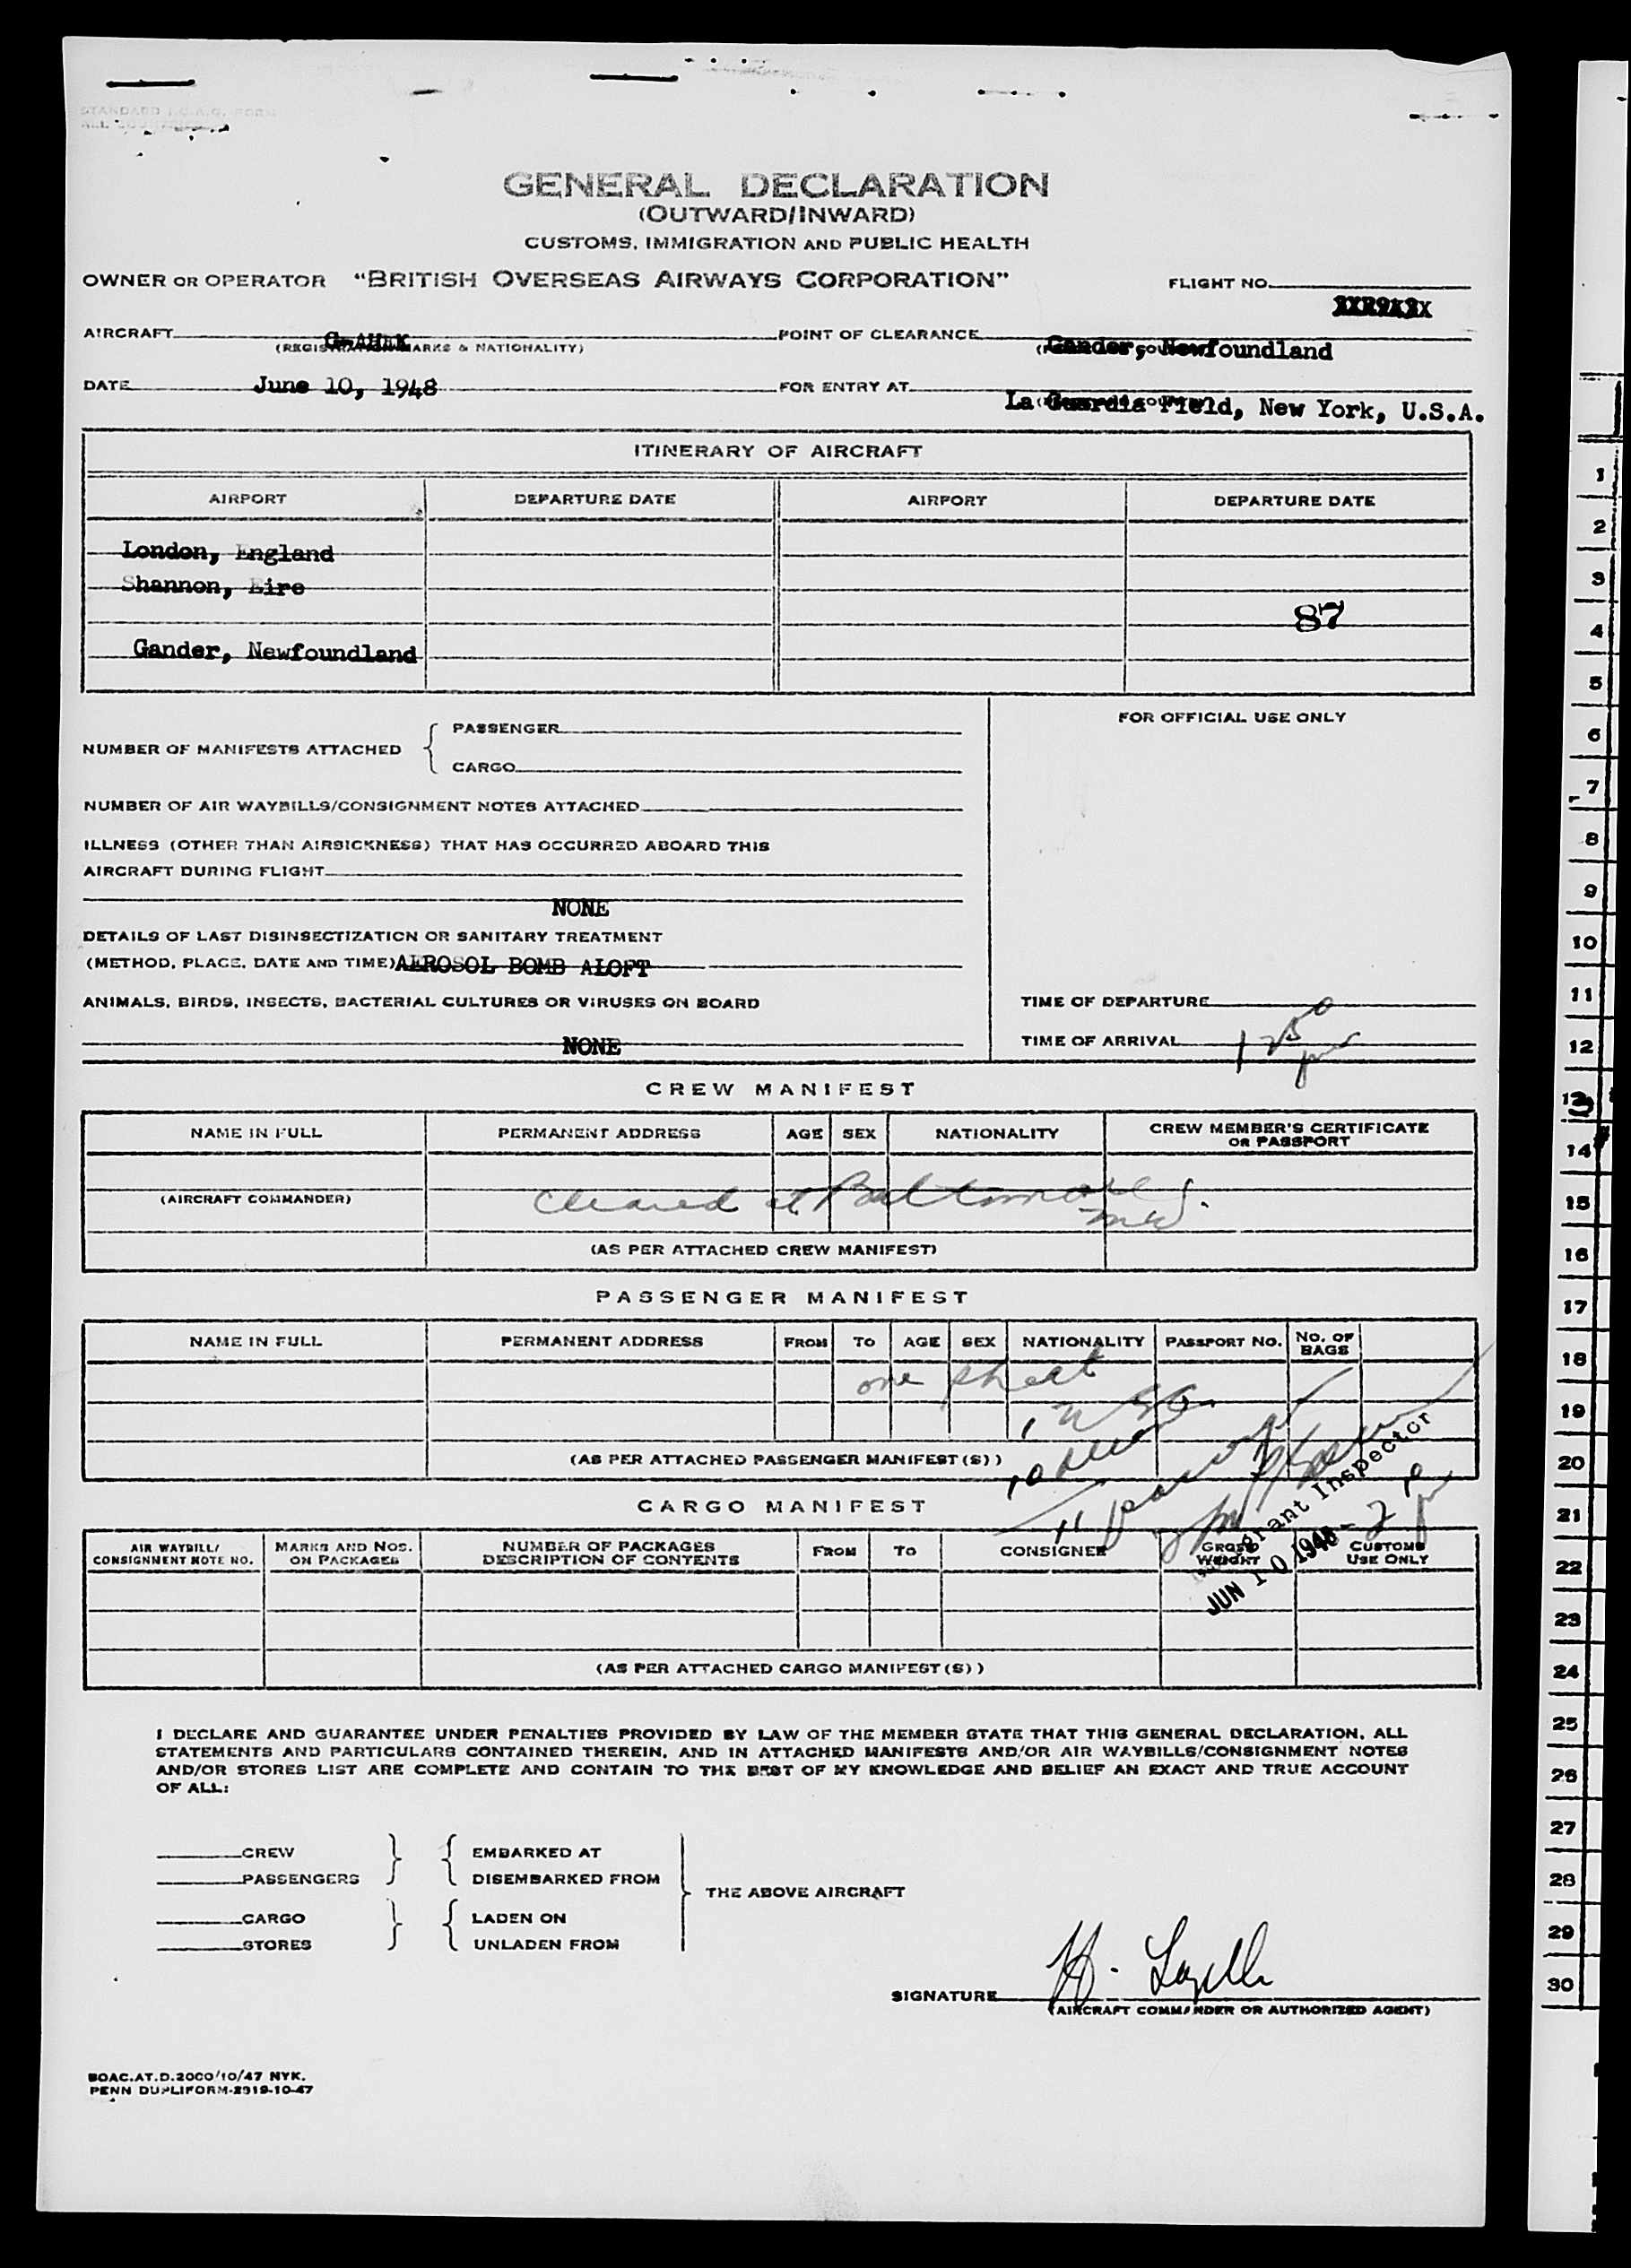 STANDARD I.C.A.O. FORM
GENERAL DECLARATION
(OUTWARD/INWARD)
CUSTOMS, IMMIGRATION AND PUBLIC HEALTH
OWNER OR OPERATOR "BRITISH OVERSEAS AIRWAYS CORPORATION" FLIGHT NO.
AIRCRAFT POINT OF CLEARANCE Gander, Newfoundland
(REGISTRATION MARKS & NATIONALITY)
DATE June 10, 1948 FOR ENTRY AT
La Guardia Field, New York, U.S.A.
ITINERARY OF AIRCRAFT
AIRPORT DEPARTURE DATE AIRPORT DEPARTURE DATE
London, England
Shannon, Eire
87
Gander, Newfoundland
NUMBER OF MANIFESTS ATTACHED { PASSENGER
CARGO
FOR OFFICIAL USE ONLY
NUMBER OF AIR WAYBILLS/CONSIGNMENT NOTES ATTACHED
ILLNESS (OTHER THAN AIRSICKNESS) THAT HAS OCCURRED ABOARD THIS
AIRCRAFT DURING FLIGHT
NONE
DETAILS OF LAST DISINSECTIZATION OR SANITARY TREATMENT
(METHOD, PLACE, DATE AND TIME) AEROSOL BOMB ALOFT
ANIMALS, BIRDS, INSECTS, BACTERIAL CULTURES OR VIRUSES ON BOARD
NONE
TIME OF DEPARTURE
TIME OF ARRIVAL 1 25 pm
CREW MANIFEST
NAME IN FULL PERMANENT ADDRESS AGE SEX NATIONALITY CREW MEMBER'S CERTIFICATE OR PASSPORT
(AIRCRAFT COMMANDER) Cleared at Baltimore
(AS PER ATTACHED CREW MANIFEST)
PASSENGER MANIFEST
NAME IN FULL PERMANENT ADDRESS FROM TO AGE SEX NATIONALITY PASSPORT NO. NO. OF BAGS
one sheet
(AS PER ATTACHED PASSENGER MANIFEST(S))
Immigrant Inspector
JUN 10 1948
CARGO MANIFEST
AIR WAYBILL/ CONSIGNMENT NOTE NO. MARKS AND NOS. ON PACKAGES NUMBER OF PACKAGES DESCRIPTION OF CONTENTS FROM TO CONSIGNEE GROSS WEIGHT CUSTOMS USE ONLY
(AS PER ATTACHED CARGO MANIFEST(S))
I DECLARE AND GUARANTEE UNDER PENALTIES PROVIDED BY LAW OF THE MEMBER STATE THAT THIS GENERAL DECLARATION, ALL
STATEMENTS AND PARTICULARS CONTAINED THEREIN, AND IN ATTACHED MANIFESTS AND/OR AIR WAYBILLS/CONSIGNMENT NOTES
AND/OR STORES LIST ARE COMPLETE AND CONTAIN TO THE BEST OF MY KNOWLEDGE AND BELIEF AN EXACT AND TRUE ACCOUNT
OF ALL:
CREW EMBARKED AT
PASSENGERS DISEMBARKED FROM
THE ABOVE AIRCRAFT
CARGO LADEN ON
STORES UNLADEN FROM
SIGNATURE
(AIRCRAFT COMMANDER OR AUTHORIZED AGENT)
BOAC.AT.D.2000/10/47 NYK.
PENN DUPLIFORM-2919-10-47
1
2
3
4
5
6
7
8
9
10
11
12
13
14
15
16
17
18
19
20
21
22
23
24
25
26
27
28
29
30